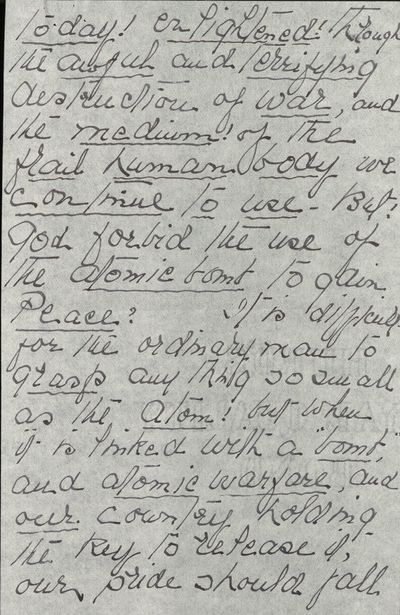 today! enlightened! Through
the awful and terrifying
destruction of war, and
the medium! of the
frail human body we
continue to use - But!
God forbid the use of
the atomic bomb to gain
Peace? It is difficult
for the ordinary man to
grasp any thing so small
as the atom! but when
it is linked with a "bomb,"
and atomic warfare, and
our country holding
the key to release it,
our pride should fall